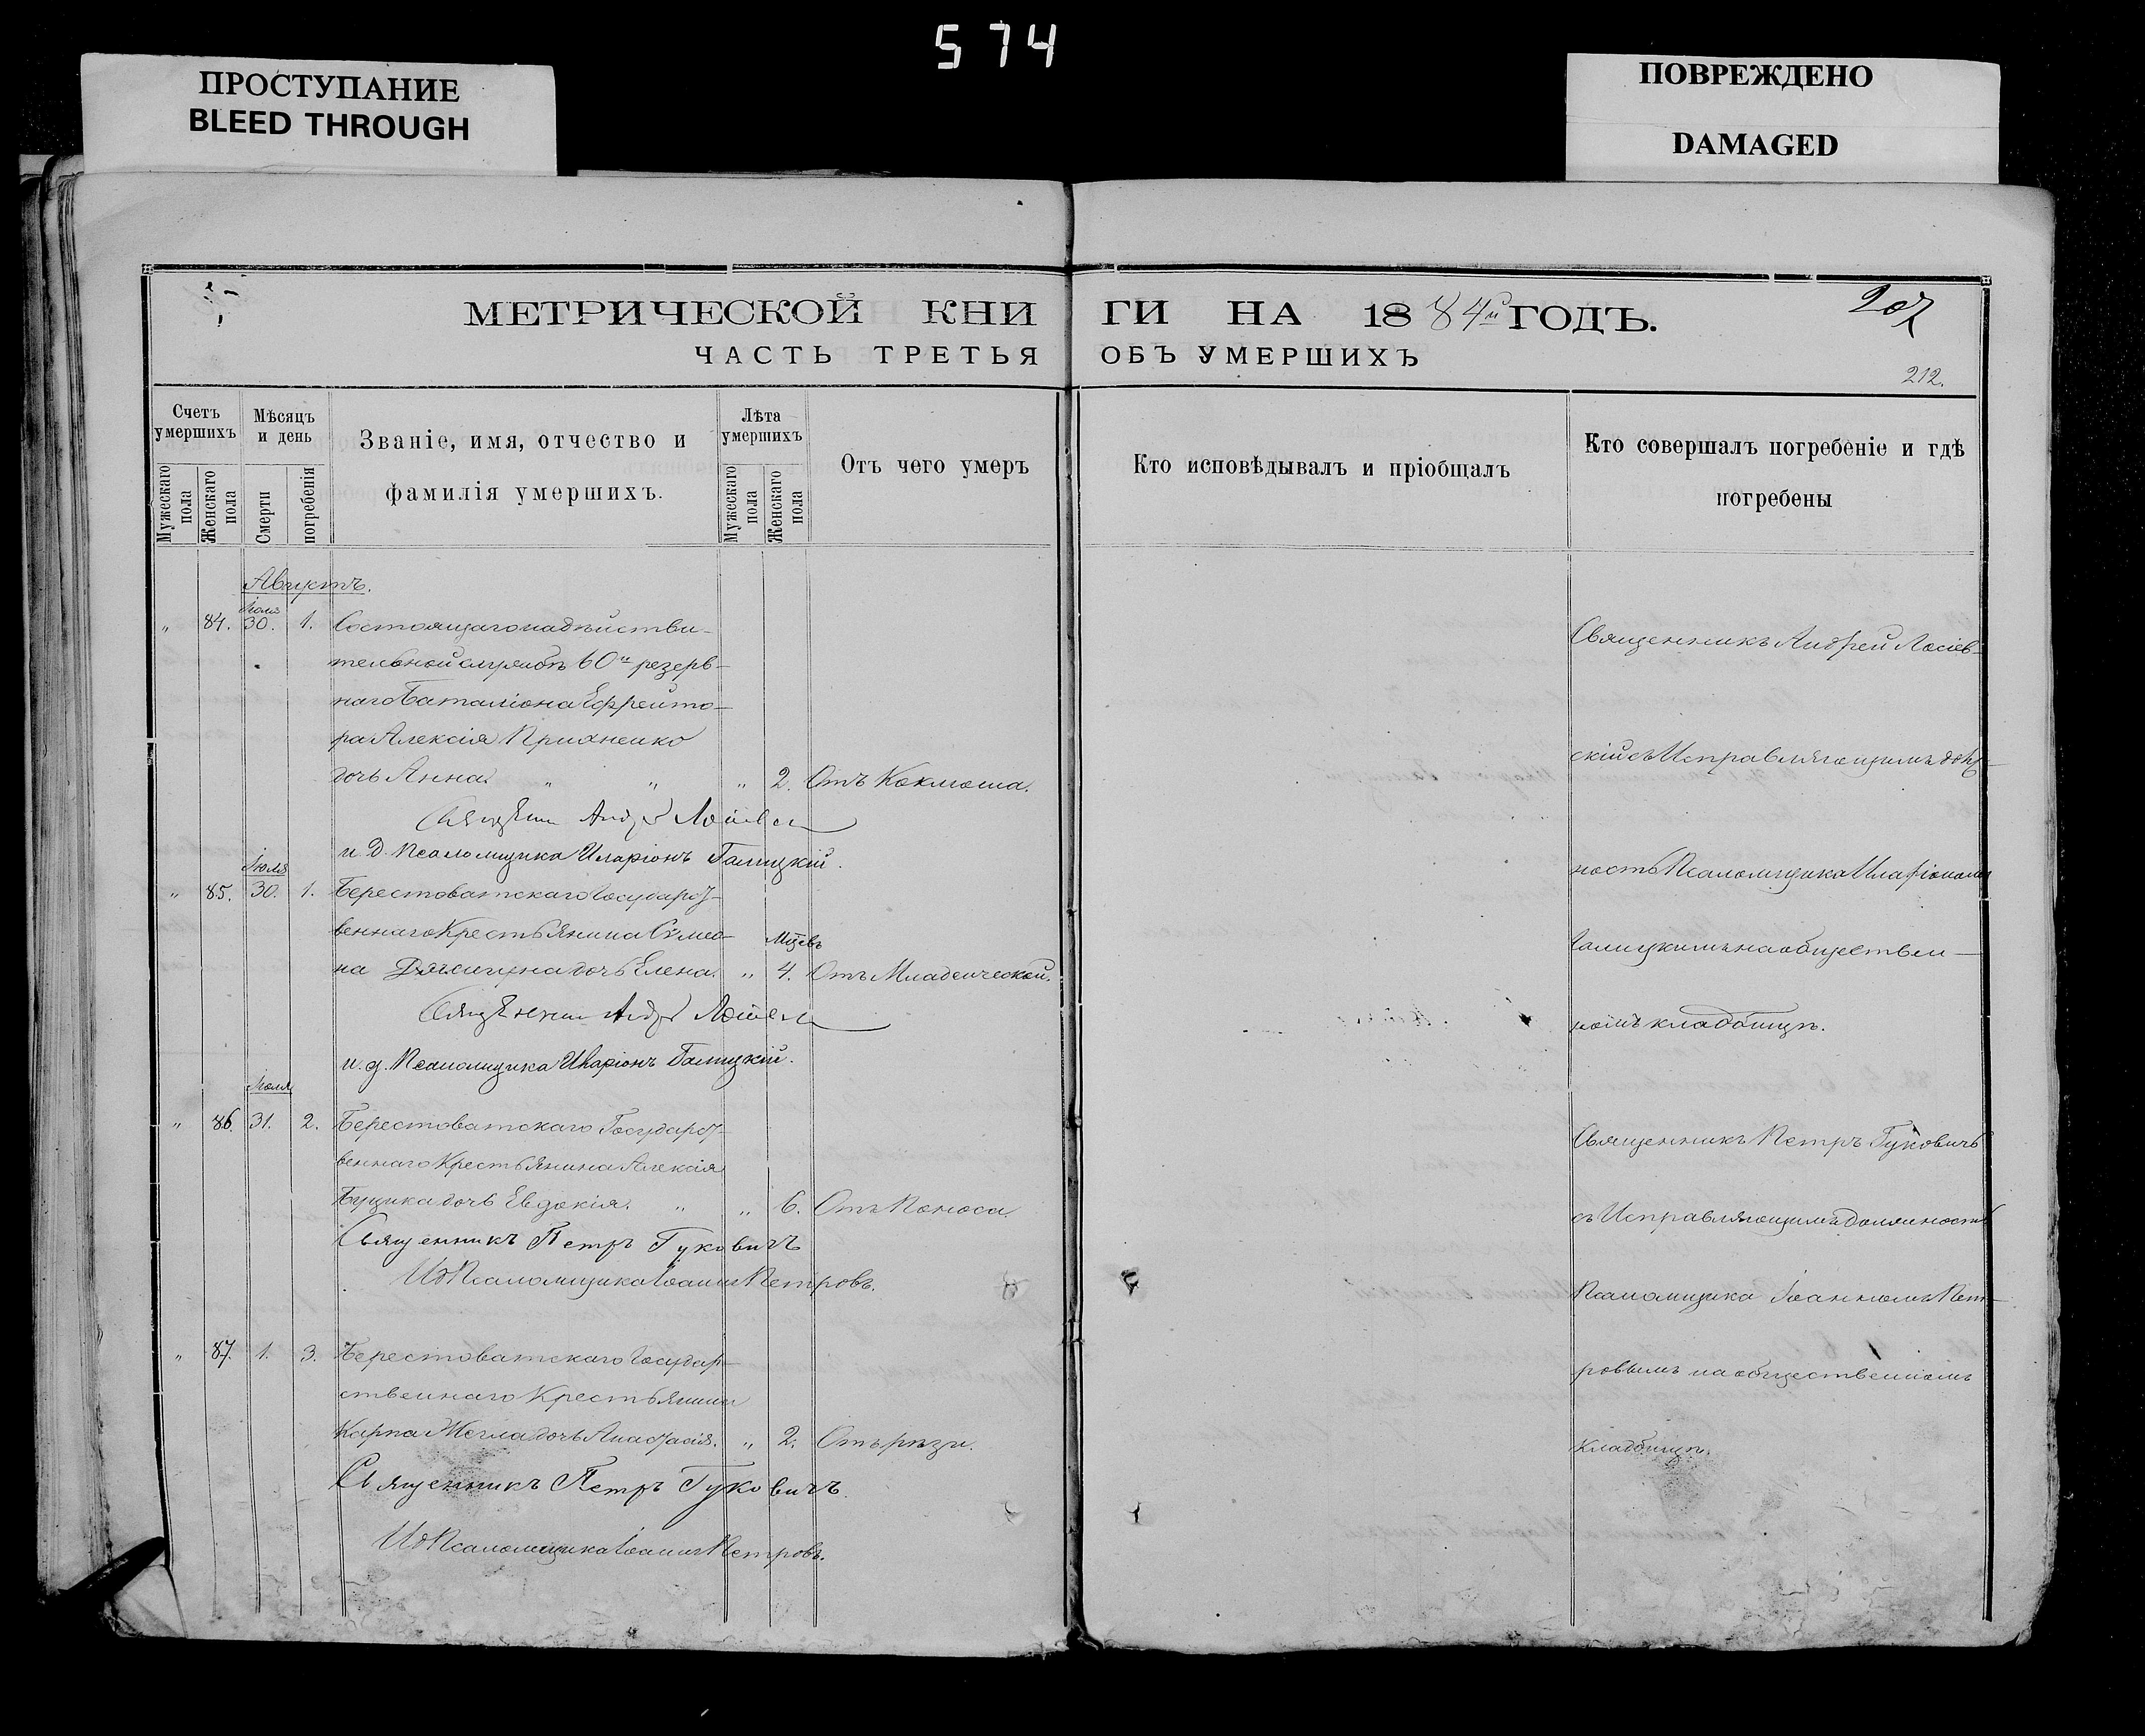 574
ПРОСТУПАНИЕ
BLEED THROUGH
ПОВРЕЖДЕНО
DAMAGED
МЕТРИЧЕСКОЙ КНИГИ НА 1884й ГОДЪ.
207
ЧАСТЬ ТРЕТЬЯ ОБЪ УМЕРШИХЪ
212.
Счетъ умершихъ
Мужескаго пола
Женскаго пола
Мѣсяцъ и день
Смерти
погребенія
Званіе, имя, отчество и
фамилія умершихъ.
Лѣта умершихъ
Мужескаго пола
Женскаго пола
Отъ чего умеръ
Кто исповѣдывалъ и пріобщалъ
Кто совершалъ погребеніе и гдѣ
погребены
Августъ.
Іюля
„ 84. 30. 1. Состоящаго на дѣйстви-
тельной службѣ 60го резерв-
наго Баталіона Ефрейто-
ра Алексія
дочь Анна. „ „ „ 2. Отъ Коклюша.
Андр
и. д. Псаломщика Иларіонъ Галицкій.
Іюля
„ 85. 30. 1. Берестоватскаго Государст-
веннаго Крестьянина Симео-
Мцевъ
на дочь Елена. „ 4. Отъ Младенческой.
Андр
и. д. Псаломщика Иларіонъ Галицкій.
Іюля
„ 86. 31. 2. Берестоватскаго Государст-
веннаго Крестьянина Алексія
Буцика дочь Евдокія. „ „ 6. Отъ Поноса.
Священникъ Петръ Гуковичъ
ИдПсаломщика Іоаннъ Петровъ.
„ 87. 1. 3. Берестоватскаго Государ-
ственнаго Крестьянина
Карпа дочь Анастасія. „ 2. Отъ рѣзи.
Священникъ Петръ Гуковичъ.
ИдПсаломщика Іоаннъ Петровъ.
Священникъ Андрей Лосіев-
скій съ Исправляющимъ долж-
ность Псаломщика Иларіономъ
Галицкимъ на обществен-
номъ кладбищѣ.
Священникъ Петръ Гуковичъ
съ Исправляющимъ Должность
Псаломщика Іоанномъ Пет-
ровымъ на общественномъ
кладбищѣ.